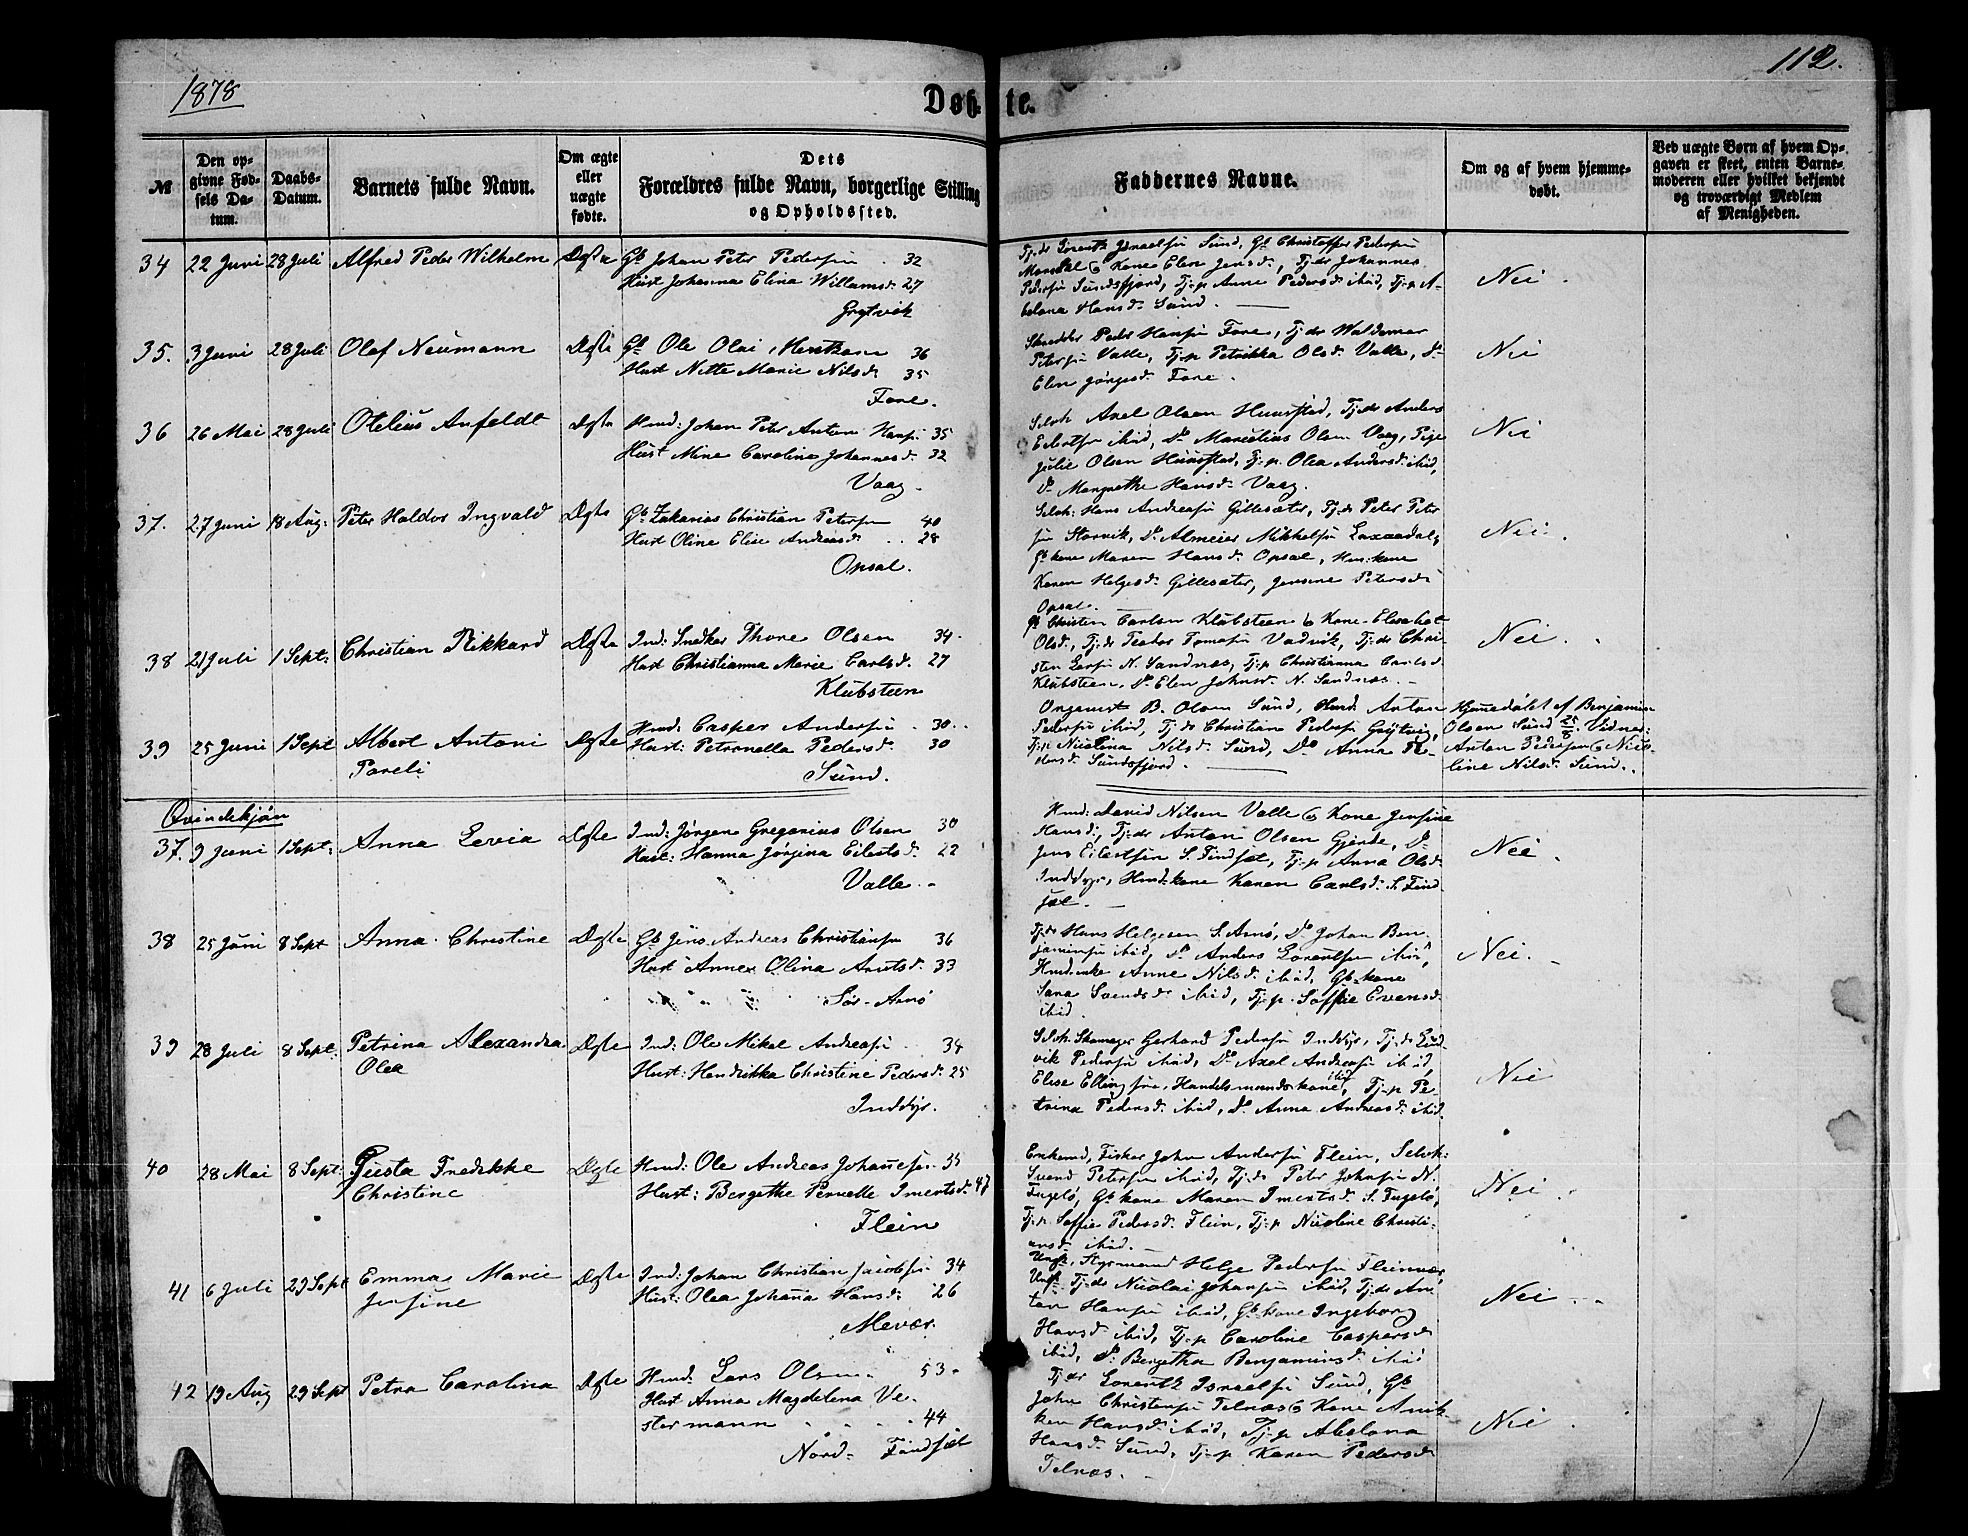 1878
112.
Døbte.
№
Den opgivne Fødsels Datum.
Daabs-Datum.
Barnets fulde Navn.
Om ægte eller uægte fødte.
Dets Forældres fulde Navn, borgerlige Stilling og Opholdssted.
Faddernes Navne.
Om og af hvem hjemmedøbt.
Ved uægte Børn af hvem Opgaven er skeet, enten Barnemoderen eller hvilket bekjendt og troværdigt Medlem af Menigheden.
34 22 Juni 28 Juli Alfred Peder Wilhelm Ægte Gb Johan Peter Pedersen 32
Hust Johanna Elina Willumsd. 27
Grytvik
Tj. dr Lorentz Israelsen Sund, Gb Christoffer Pedersen
& Kone Elen Jensd., Tj. dr Johannes
Pedersen Sundsfjord, Tj. p Anne Pedersd. ibid, Tj. p A-
belona Hansd. Sund.
Nei.
35. 3 Juni 28 Juli Olaf Neumann Ægte Gb Ole Olai 36
Hust Nette Marie Nilsd. 35
Fore.
Peder Hansen Fore, Tj. dr Waldemar
Petersen Valle, Tj. p Petrikka Olsd. Valle, do
Elen Jørgesd. Fore.
Nei
36 26 Mai 28 Juli Otelius Anfeldt Ægte Hmd: Johan Peter Anton Hansen 35
Hust Mina Carolina Johannesd. 32
Vaag.
Selvh Axel Olsen Hunstad, Tj. dr Anders
Eilertsen ibid, Do Marselius Olsen Vaag, Pige
Julie Olsen Hunstad, Tj. p. Olea Andersd. ibid,
Do Margrethe Hansd. Vaag.
Nei
37. 27 Juni 18 Aug: Peter Haldor Ingvald Ægte Gb Zakarias Christian Petersen 40
Hust Oline Elise Andreasd. 28
Opsal.
Selvh: Hans Andreasen Gillesæter, Tj. dr Peter Peter
sen Storvik, Do Almeier Mikkelsen Laxaadal,
Gb kone Maren Hansd. Opsal, Hus. kone
Karen Helgesd. Gillesæter, Jensine Petersd.
Opsal.
Nei.
38 21 Juli 1 Sept: Christian Rikkard Ægte Ind: Snedker Thore Olsen 34
Hust Christianna Marie Carlsd. 27
Klubsteen
Gb Christen Carlsen Klubsteen & Kone Elisabet
Olsd., Tj. dr Teodor Tomasen Vadvik, Tj. dr Chri-
sten Larsen N. Sandnæs, Tj. p Christianna Carlsd.
Klubsteen, Do Elen Johnsd. N. Sandnæs.
Nei.
39 25 Juni 1 Sept Albert Antoni Ægte Hmd: Casper Andersen 30
Pareli Hust: Petronella Pedersd. 30
Sund.
B. Olsen Sund, Hmd: Anton
Pedersen ibid, Tj. dr Christian Pedersen Grytvig,
Tj. p Nicolina Nilsd. Sund, Do Anna Pe-
dersd. Sundsfjord.
Hjemedøbt af Benjamin
Olsen Sund 25/6. Vidner:
Anton Pedersen & Nico-
line Nilsd. Sund.
Qvindekjøn
37. 9 Juni 1 Sept: Anna Levia Ægte Ind: Jørgen Gregorius Olsen 30
Hust: Hanna Jørgina Eilertsd. 22
Valle.
Hmd: David Nilsen Valle & Kone Jensine
Hansd., Tj. dr Anton Olsen Gjerde, Do
Jens Eilertsen S. Findset, Tj. p Anna Olsd.
Inddyr, Hmd. kone Karen Carlsd. S. Find
set.
Nei.
38 25 Juni 8 Sept Anna Christine Ægte Gb Jens Andreas Christiansen 36
Hust Anne Olina Arntsd. 33
Sør-Arnø
Tj. dr Hans Helgesen S. Arnø, Do Johan Ben-
jaminsen ibid, Do Anders Lorentsen ibid,
Anne Nilsd. ibid, Gb kone
Sara Svendsd. ibid, Tj. p. Soffie Evensd.
ibid.
Nei.
39 28 Juli 8 Sept. Petrina Alexandra Ægte Ind: Ole Mikal Andreasen 34
Olea Hust: Hendrikka Christine Pedersd. 25
Inddyr.
Selvh. Skomager Gerhard Pedersen Inddyr, Tj. dr Lud-
vik Pedersen ibid, Do Axel Andreasen ibid,
Elise Ellingsen, Handelsmandskone ibid, Tj. p Pe-
trina Pedersd. ibid, Do Anna Andreasd. ibid.
Nei
40 28 Mai 8 Sept: Justa Fredrikke Ægte Hmd: Ole Andreas Johannesen 35
Christine Hust: Bergethe Pernelle Imertsd. 47
Flein
Enkemd, Fisker John Andersen Flein, Selvh:
Svend Petersen ibid, Tj. dr Peter Johnsen N.
Fugelø, Gb kone Maren Imertsd. S. Fugelø,
Tj. p. Soffie Pedersd. Flein, Tj. p Nicoline Christi-
ansd. ibid.
Nei.
41 6 Juli 29 Sept Emma Marie Ægte Ind: Johan Christian Jacobsen 34
Jensine Hust: Olea Johanna Hansd. 26
Mevær.
Ungk. Styrmand Helge Pedersen Fleinvær,
Ungk. Tj. dr Nicolai Johansen ibid, Tj. dr An-
ton Hansen ibid, Gb kone Ingeborg
Hansd. ibid, Tj. p Caroline Caspersd.
ibid, Do Bergetha Benjaminsd. ibid
Nei.
42 19 Aug 29 Sept Petra Carolina Ægte Hmd Lars Olsen 53
Hust Anna Magdelena Ve-
stermann 44
Nord-Findset
Tj. dr Lorentz Israelsen Sund, Gb
John Christensen Telnæs & Kone Anik-
ken Hansd. ibid, Tj. p Abelona
Hansd. Sund, Tj. p Karen Pedersd.
Telnæs.
Nei.